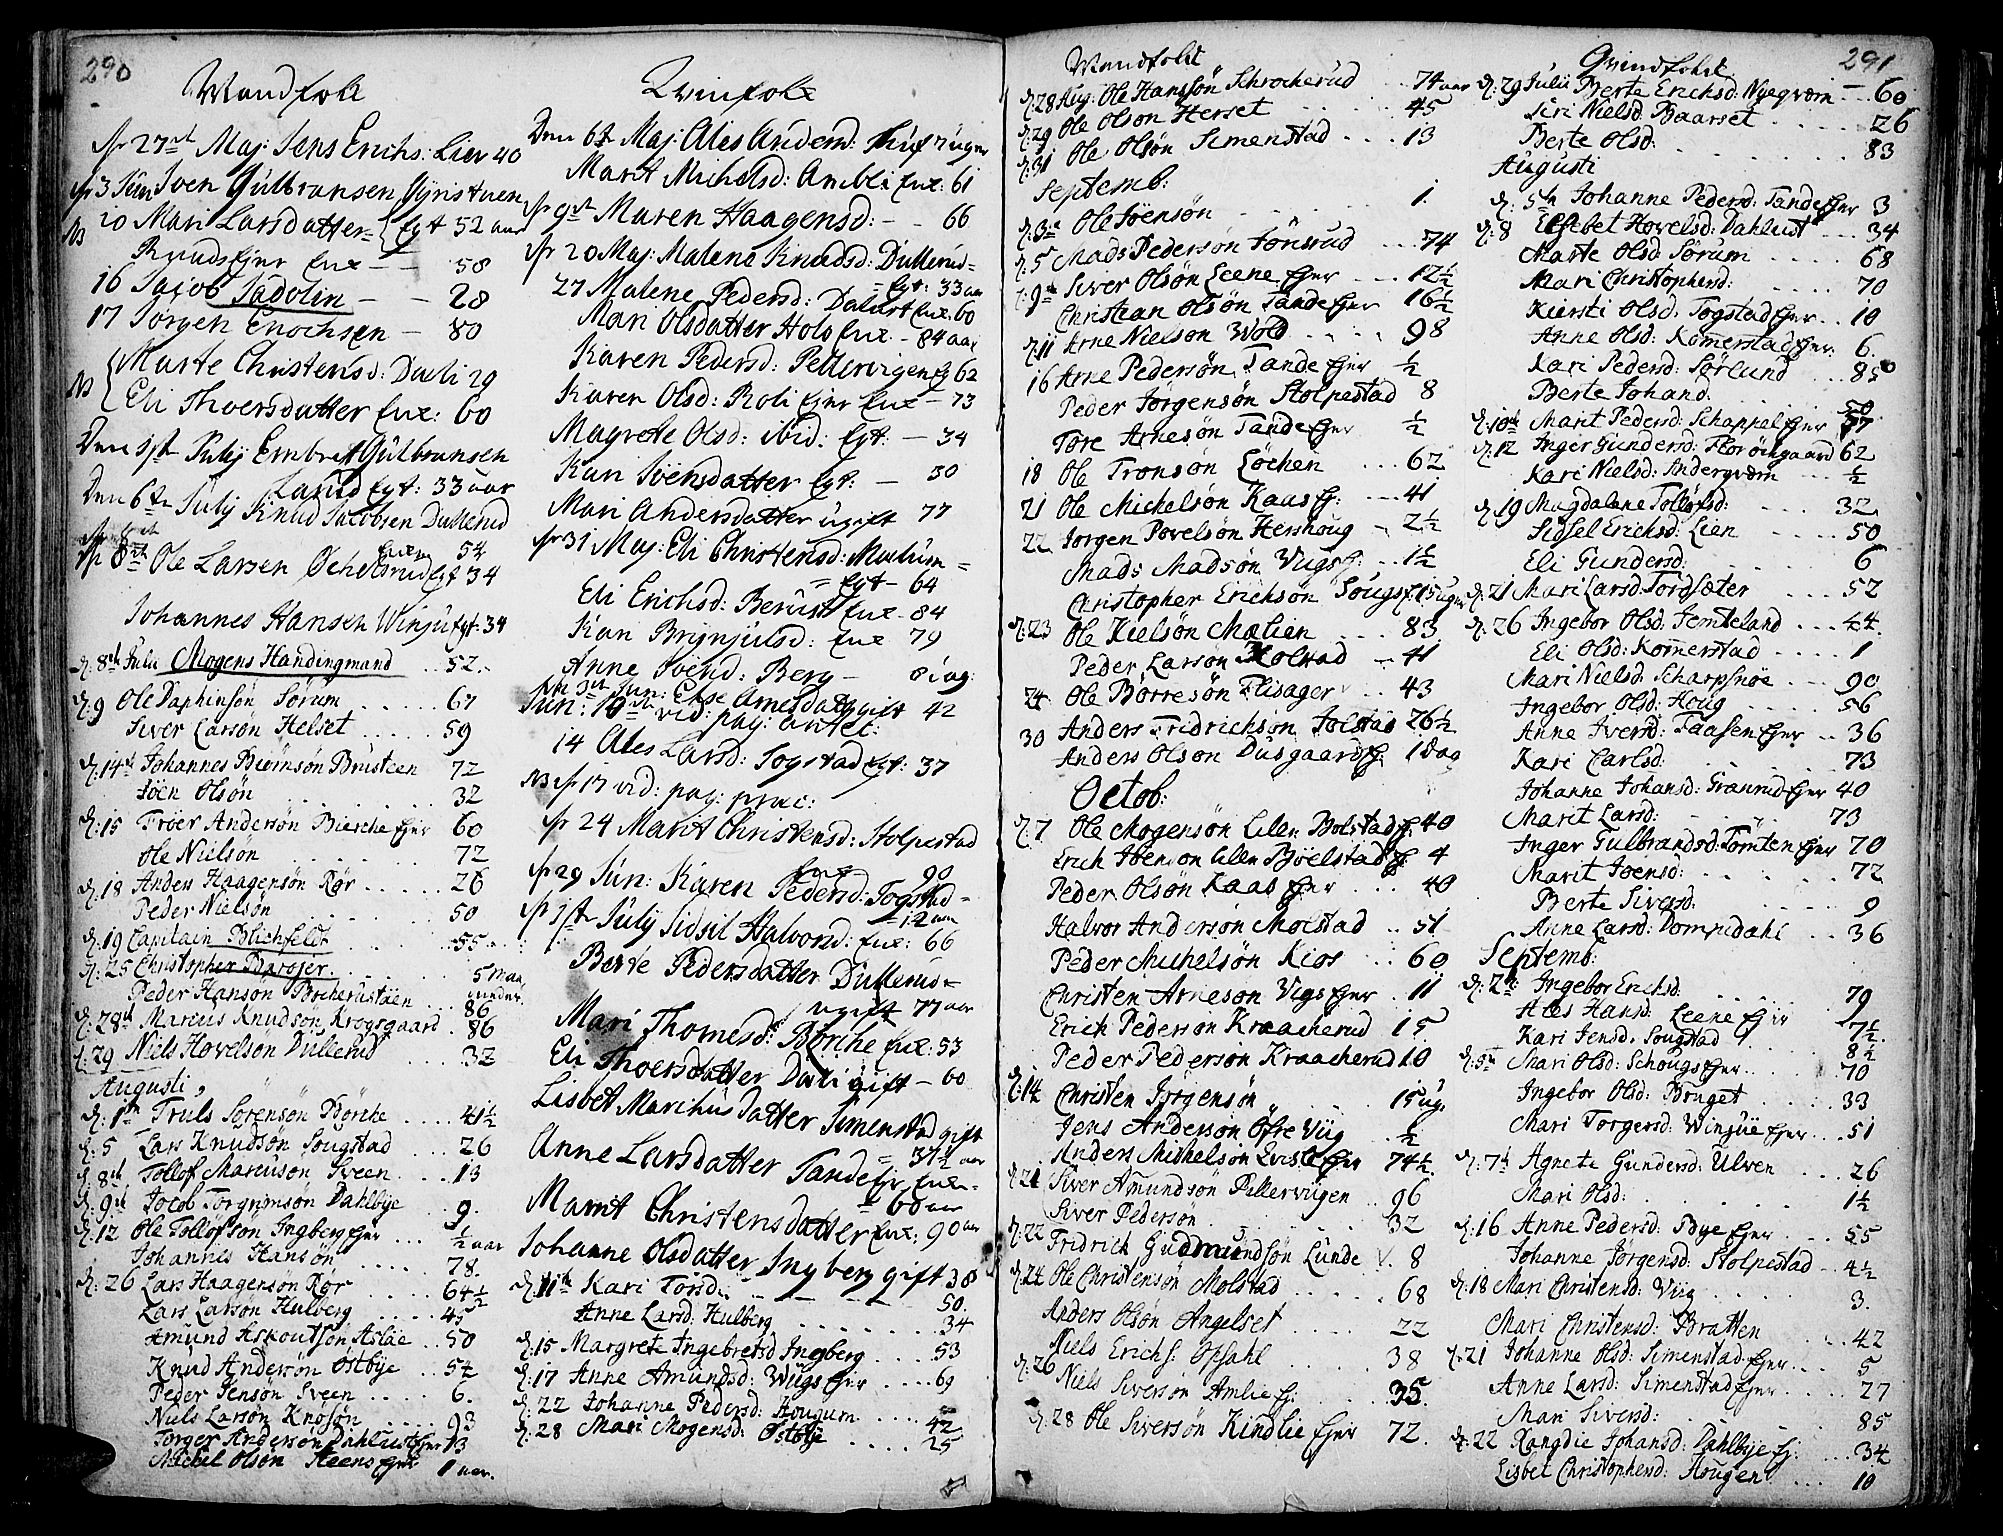 290
Mandfolk
d 27de Maj: Jens Erichs: Lier 40
d 3 Jun Iven Gulbransen Gjristuen
NB 20 Mari Larsdatter = Egt 52 aar
Ruuds Ejer Enx — — 58
16 Jacob Sadolin — — 28
17 Jörgen Enochsen — 80
NB Marte Christensd: Dæli 29
Eli Thoersdatter Enx: 60
Den 1ste Julij Embret Gulbransen
Laurd Egt: 33 aar
Den 6te Julij Knud Jacobsen Dullerud
Enxem 54
d 8de Ole Larsen Öchelsrud Egt 34
Johannes Hansen Winju Egt: 34
d: 8de Julii Mogens Handingmand .. 52.
d: 9 Ole Daphinsön Sörum .... 67
Siver Larsön Helset ..... 59
d: 14de Johannes Biörnsön Brusteen 72
Joen Olsön ........ 32
d: 15 Troer Andersön Bierche Ejer 60
Ole Nielsön ........ 72
d: 18 Anders Haagensön Rör ..... 26
Peder Nielsön ...... 50
d: 19 Capitain Blichfeldt ..... 55
d: 25 Christopher .....
5 Maan
Peder Hansön Bocherustuen ... 86
d: 28de Marcus Knudsön Krogsgaard . 86
d: 29 Niels Hovelsön Dullerud ... 32
Augusti,
d: 1te Truls Sörensön Börche .... 41½
d: 5 Lars Knudsön Sougstad ... 26
d. 8de Tollof Marcusön Sveen ... 13
d. 9de Jocob Torgrimsön Dahlbye .. 9.
d: 12 Ole Tollofsön Ingberg Ejer ... ½ aar
Johannes Hansön ..... 78.
d: 26 Lars Haagensön Rör .... 64½
Lars Larsön Hulberg ..... 45
Amund Askoutsön Aslie .. 50
Knud Andersön Östbye .. 54
Peder Jensön Sveen .... 6.
Niels Larsön Knösön .... 93
Torger Andersön Dahlust Ejer 13
Michel Olsön Steens Ejer 1 aar.
Qvinfolk
Den 6te Maj: Ales Anders: 7 uger
Marit Michelsd: Ambli Enx: 61
d 9de Maren Haagensd: — 66
d 20 Maj: Malene Knudsd: Dullerud =
= Egt: 33 aar
27 Malene Pedersd: Dalust Enx: 60
Mari Olsdatter Hols Enx — 84 aar
Karen Pedersd: Pellervigen Eg 62
Karen Olsd: Roli Ejer Enx — 73
Magrete Olsd: ibid: Egt: — 34
Kari Svensdatter Egt: — 30
Mari Andersdatter ugift 77
d 31 Maj: Eli Christensd: Mælum =
= Egt — 64
Eli Erichsd: Berust Enx — 84
Kari Brynjulsd: Enx 79
Anne Svend: Berg — 8 ug:
d 3de Jun: Else Arnesdat gift 42
Jun: 10de vid: pag: antec:
14 Ales Larsd: Sogstad Egt: 37
NB d 17 vid: pag: præc:
d 24 Marit Christensd: Stolpestad
Enx 90
d 29 Jun: Karen Pedersd: Togstad =
12 aar
d 1ste Julij Sidsil Halvord: Enx: 66
Berte Pedersdatter Dullerud =
ugift 77 aar
Mari Thomesd: Börche Enx: 53
Eli Thoersdatter Dæli ugift — 60
Lisbet Marchusdatter Simenstad gift
= 37½ aar
Anne Larsdatter Tande Ejr Enx
= 60 aar
Marit Christensdatter Enx: 90 aar
Johanne Olsdatter Ingberg gift 38
d: 11te Kari Torsd: ...... 50.
Anne Larsd: Hulberg ....... 34
d: 15 Margrete Ingebretsd Ingberg .... 53
d: 17 Anne Amundsd: Wügs Ejer .... 69
d: 22 Johanne Pedersd: Hougum .... 42
d: 28 Mari Mogensd: Östbÿe .... 25
Mandfolk
d: 28 Aug: Ole Hansön Schrocherud ... 74 aar
d: 29 Ole Olsön Herset ..... 45
d: 31 Ole Olsön Simenstad .... 13
Septemb:
d: 3de Ole Joensön ...... 1.
d: 5 Mads Pedersön Jönsrud ... 74
d: 9de Siver Olsön Leene Ejer .... 12½
Christian Olsön Tande Ejer 16½
d: 11 Arne Nielsön Wold ..... 98
16 Arne Pedersön Tande Ejer ½
Peder Jörgensön Stolpestad 8
Tore Arnesön Tande Ejer ½
18 Ole Tronsön Löchen ... 62
21 Ole Michelsön Kaas Ej: .... 41
22 Jörgen Povelsön Hershoug .. 2½
Mads Madsön Vugs Ej: .. 1½
Christopher Erichsön Sougs Ej: 15 uger
d: 23 Ole Kielsön Mælien .... 83
Peder Larsön Holstad .. 41
24 Ole Börresön Flisager ... 43
30 Anders Fridrichsön Jolstad 26½
Anders Olsön Dusgaard Ej: 1 Dag
Octob:
d: 7 Ole Mogensön Lilen Bolstad Ej: 40
Erich Ibensön Lilen Böelstad Ej 4
Peder Olsön Kaas Ejer .... 40
Halvor Andersön Molstad .. 51
Peder Michelsön Kios .. 60
Christen Arnesön Vigs Ejer . 11
Erich Pedersön Kraacherud 15
Peder Pedersön Kraacherud 10
d: 14 Christen Jörgensön .... 15 ug.
Jens Andersön Öfre Viig .. ½
Anders Michelsön Ejer 74½
d: 21 Siver Amundsön Pellervügen .. 96
Siver Pedersön ...... 32
d: 22 Fridrich Gudmundsön Lunde . 8
d: 24 Ole Christensön Molstad ..... 68
Anders Olsön Angelset .... 22
Niels Erichs: Opsahl ..... 38
d: 26 Niels Siversön Amlie Ej: .... 35.
d: 28 Ole Siversön Kindlie Ejer 72.
Qvindfolk 291
d: 29 Julii Berte Erichsd: Nyegværn — .. 60
Siri Nielsd: Baarset ..... 26
Berte Olsd: ........ 83
Augusti
d: 5te Johanne Pedersd: Tande Ejer 3
d: 8 Elsebet Hovelsd: Dahlust ... 34
Marte Olsd: Sörum ..... 68
Mari Christophersd: ..... 70
Kiersti Olsd: Togstad Ejer .. 10
Anne Olsd: Komerstad Ejer: 6.
Kari Pedersd: Sörlund ... 85
Berte Johand: ......... 50
d: 10de Marit Pedersd: Schappal Ejer 57
d: 12 Inger Gundersd: Floröugaard 62
Kari Nielsd: Andergværn ... ½
d: 19 Magdalene Tollofsd: .... 32.
Sidsel Erichsd: Lien .... 50
Eli Gundersd: ....... 6
d: 21 Mari Larsd: Tordsæter .... 52
d: 26 Ingebor Olsd: Jemteland ... 44.
Eli Olsd: Komerstad .... 1
Mari Nielsd: Scharpsnöe ... 90
Ingebor Olsd: Houg .... 56
Anne Iversd: Faasen Ejer .. 36
Kari Carlsd: ....... 73
Johanne Johansd: Grænrud Ejer 40
Marit Larsd: ...... 73
Inger Gulbrandsd: Tomten Ejer 70
Marit Joensd: ...... 72
Berte Siversd: ...... 9
Anne Larsd: Dompidahl .. 36
Septemb:
d: 2de Ingebor Erichsd: ..... 79
Ales Hansd: Leene Ejer .. 7½
Kari Jensd: Sougstad .... 8½
d: 5te Mari Olsd: Schougs Ejer .... 70
Ingebor Olsd: Bruget ..... 33
Mari Torgersd: Winjüe Ejer ... 51
d: 7de Agnete Gundersd: Ulven .. 26
Mari Olsd: ....... 1½
d: 16 Anne Pedersd: Bye Ejer .... 55
Johanne Jörgensd: Stolpestad .. 4½
d: 18 Mari Christensd: Viig ..... 3.
Mari Christensd: Bratten .... 42
d: 21 Johanne Olsd: Simenstad Ejer ... 5
Anne Larsd: Simenstad Ejer ... 27
Mari Siversd: ....... 85
d: 22 Rangdie Johansd: Dahlbye Ej: ... 34
Lisbet Christophersd: Hougen ... 10